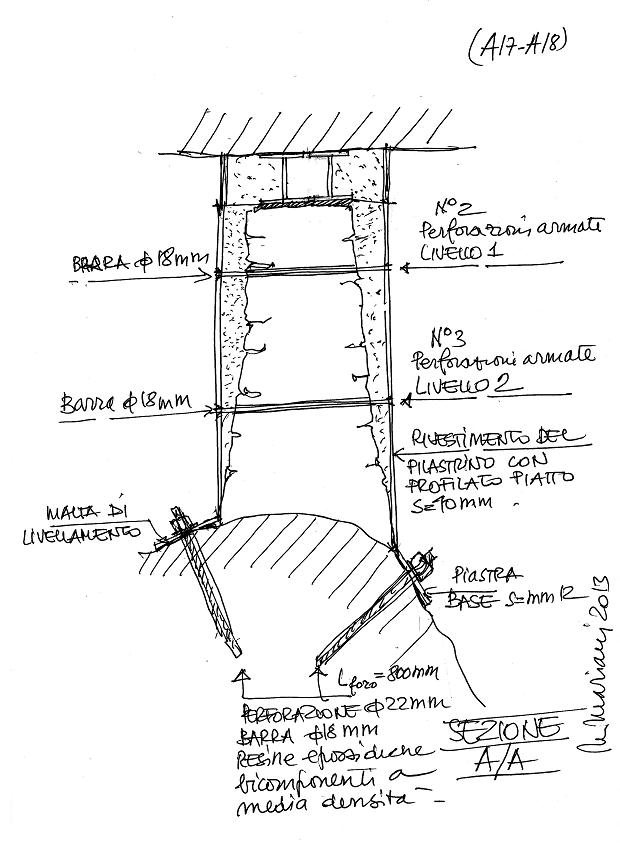 (A/7-A/8)
N°2
Perforazioni armate
LIVELLO 1
BARRA ϕ18mm
N°3
Perforazioni armate
LIVELLO 2
Barra ϕ18mm
RIVESTIMENTO DEL
PILASTRINO CON
PROFILATO PIATTO
S=10mm.
MALTA DI
LIVELLAMENTO
PIASTRA
BASE S=mm12
Lforo=800mm
PERFORAZIONE ϕ22mm
BARRA ϕ18mm
RESINE epossidiche
bicomponenti a
media densità
SEZIONE
A/A
M. Mariani 2013